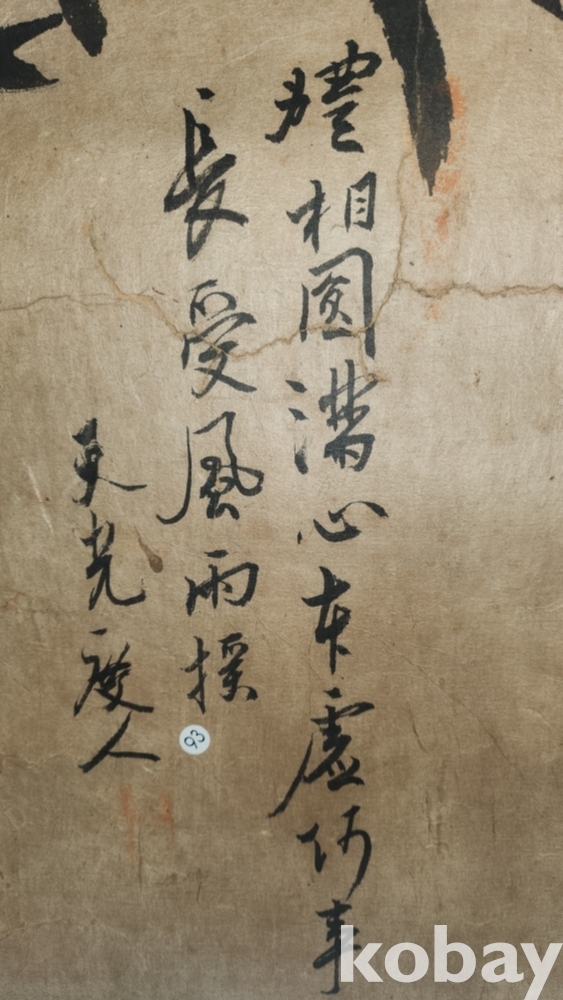 體相圓滿心本虛何事
長受風雨撲
更光度人
93
kobay